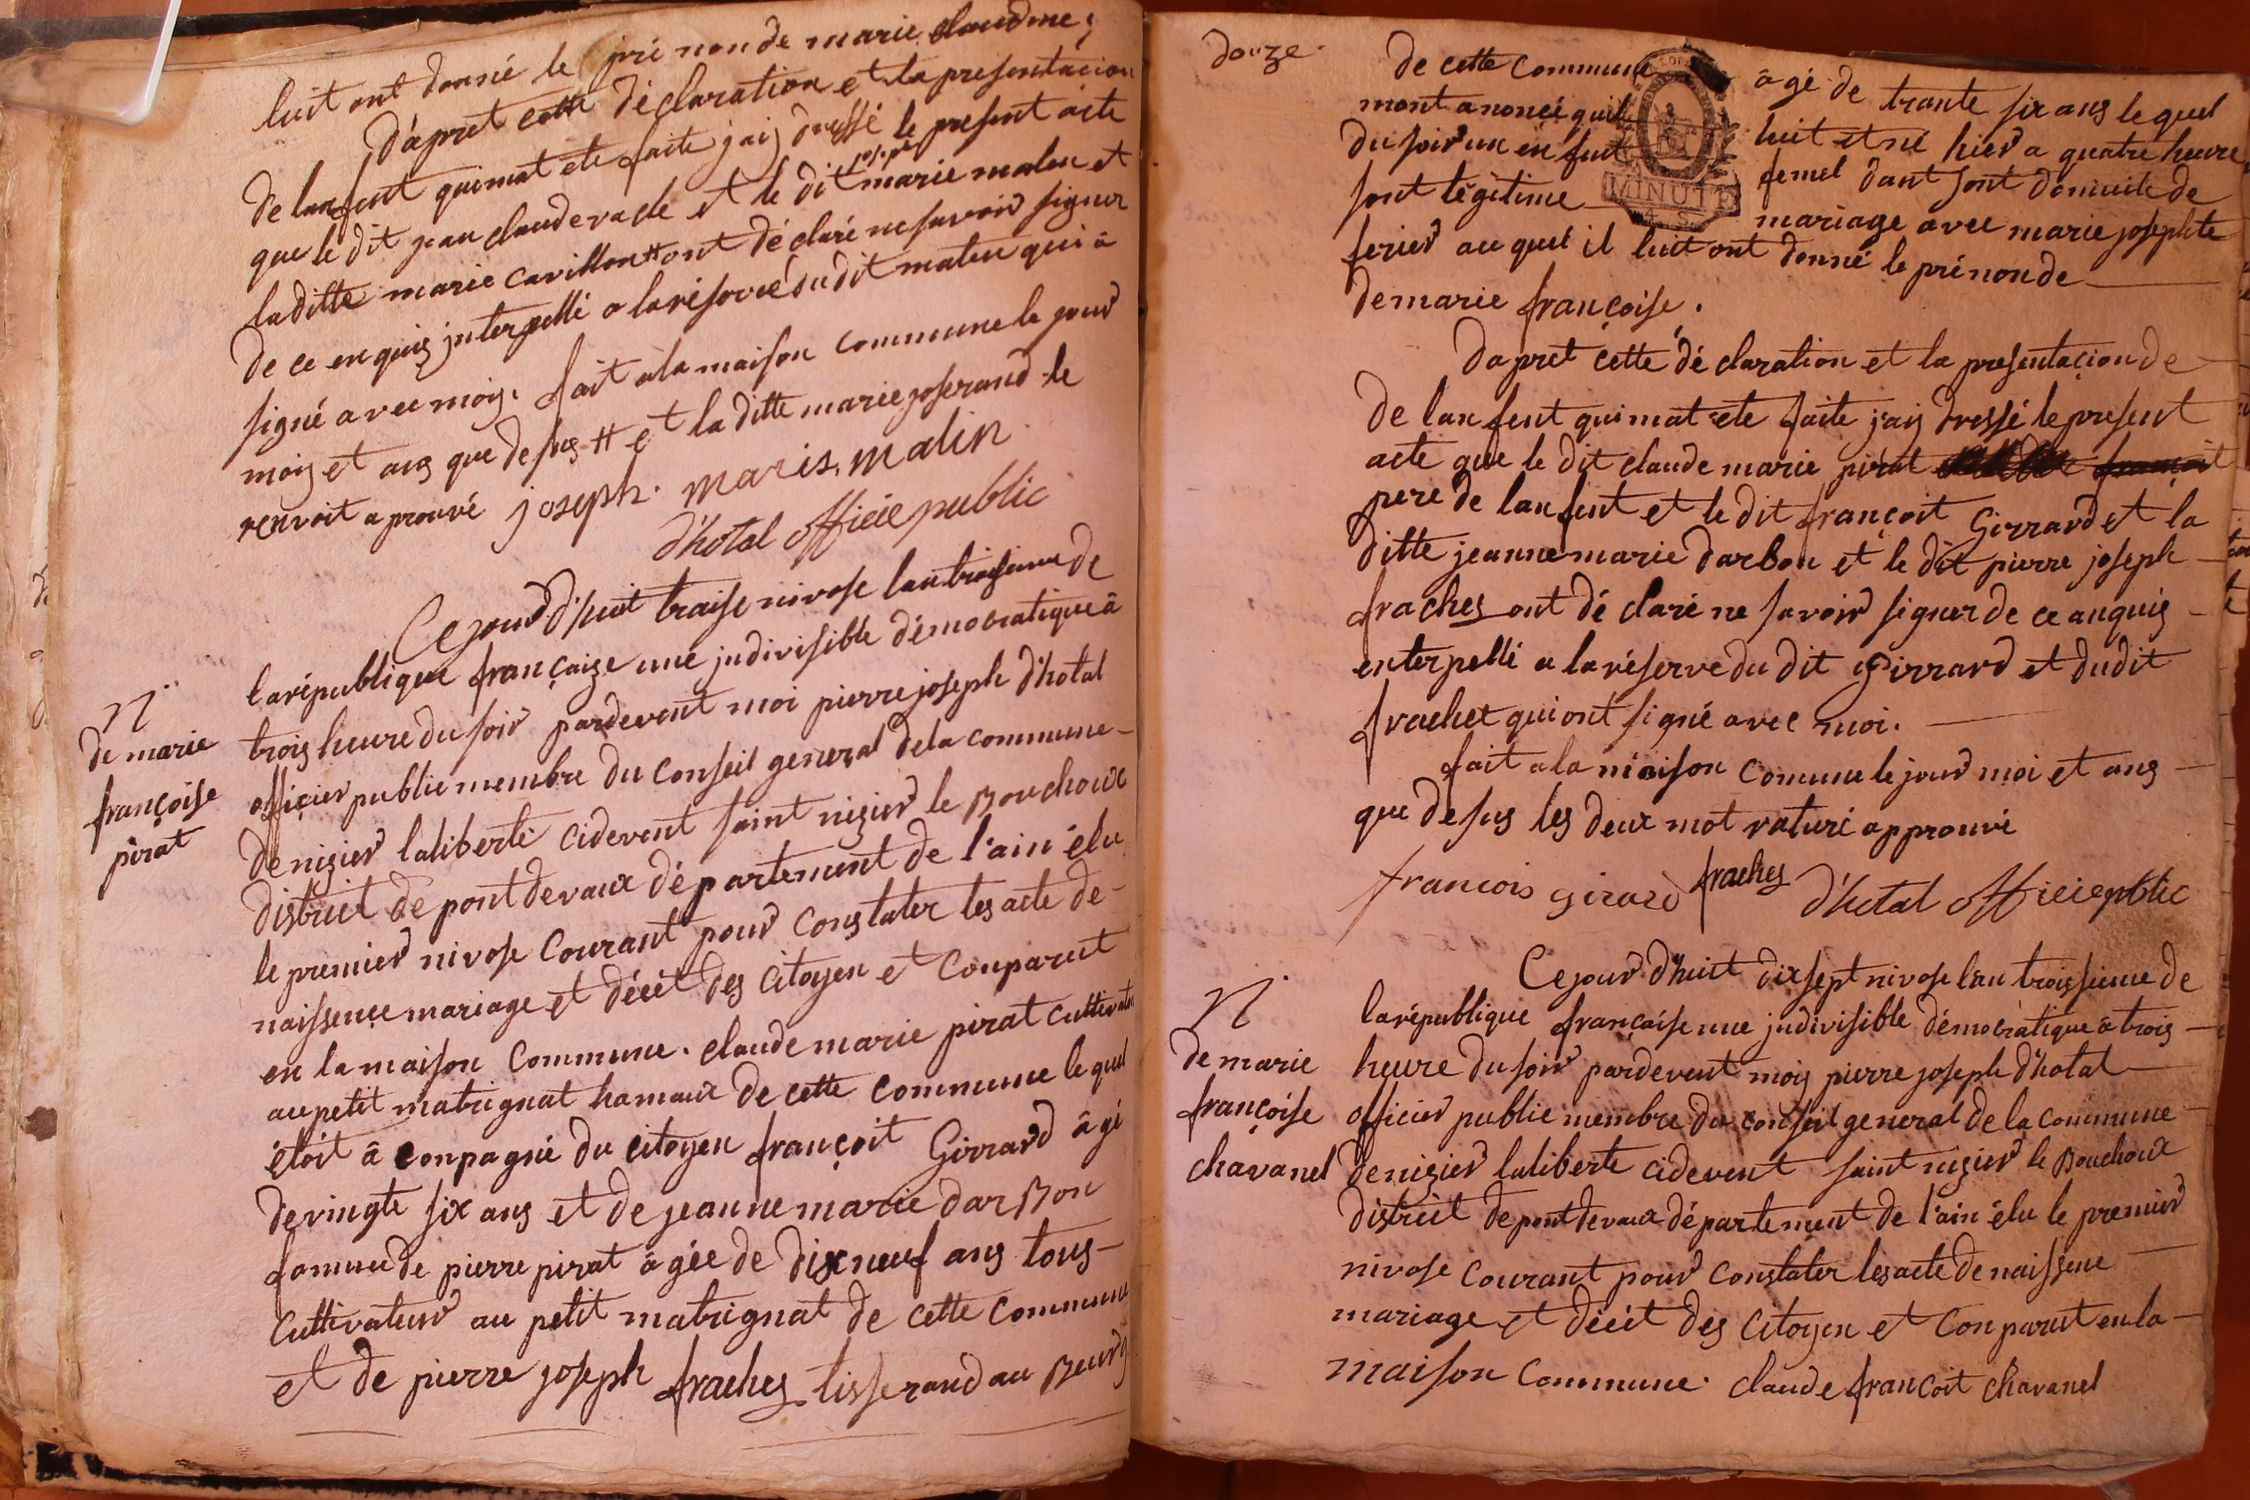 luit ont donné le prénon de marie claudine ;
d'apret cette déclaration et la presentacion
de lanfent quimat ete faite j'ais dressé le present acte
que le dit jean claude vacle et le dit joseph marie malin et
laditte marie carillon # ont déclaré ne savoir signer
de ce enquis jnterpellé a la réserve dudit malin qui â
signé avec mois. fait a la maison commune le jour
mois et ans que desus # et la ditte marie joserand le
renvoit aprouvé joseph. maris. malin
d'hotal officie public
Ce jourd'huit traise nivose lan troisieme de
la république française une jndivisible démocratique â
trois heure du soir pardevent moi pierre joseph d'hotal
officier public membre du conseil general de la commune
de nizier laliberté cidevent saint nizier le Bouchoux
district de pontdevaux département de l'ain élu
le premier nivose courant pour constater les acte de
naissence mariage et décét des citoyen et conparut
en la maison commune. claude marie pirat cultivateur
au petit matrignat hamaux de cette commune le quel
étoit â conpagné du citoyen françoit Girrard âgé
de vingte six ans et de jeanne marie darBon
famme de pierre pirat âgée de dix neuf ans tous
cultivateur au petit matrignat de cette commune
et de pierre joseph fraches tisserand au Bourg
N
de marie
françoise
pirat
douze.
de cette commune âgé de trante six ans le quel
mont anoncé quil luit et né hier a quatre heure
du soir un enfent femel dant sont domicile de
sont légitime mariage avec marie josephte
ferier au quel il luit ont donné le prénon de
de marie françoise.
MINUTE
d'apret cette déclaration et la presentaçion de
de lanfent quimat ete faite j'ais dressé le present
acte que le dit claude marie pirat françoit
pere de lanfent et le dit françoit Girrard et la
ditte jeanne marie darbon et le dit pierre joseph
fraches ont déclaré ne savoir signer de ce anquis
enterpellé a la réserve du dit Girrard et dudit
frachet qui ont signé avec moi.
fait a la maison comune le jour moi et ans
que desus les deux mot raturé approuvé
francois girard fraches d'hotal officie pblic
Ce jour d'huit dixsept nivose lan troissieme de
la république française une jndivisible démocratique â trois
heure du soir pardevent mois pierre joseph d'hotal
officier public membre du conseil general de la commune
de nizier laliberté cidevent saint nizier le Bouchoux
district de pontdevaux département de l'ain élu le premier
nivose courant pour constater les acte de naissene
mariage et décét des citoyen et conparut en la
maison commune. claude françoit chavanel
N
de marie
françoise
chavanel